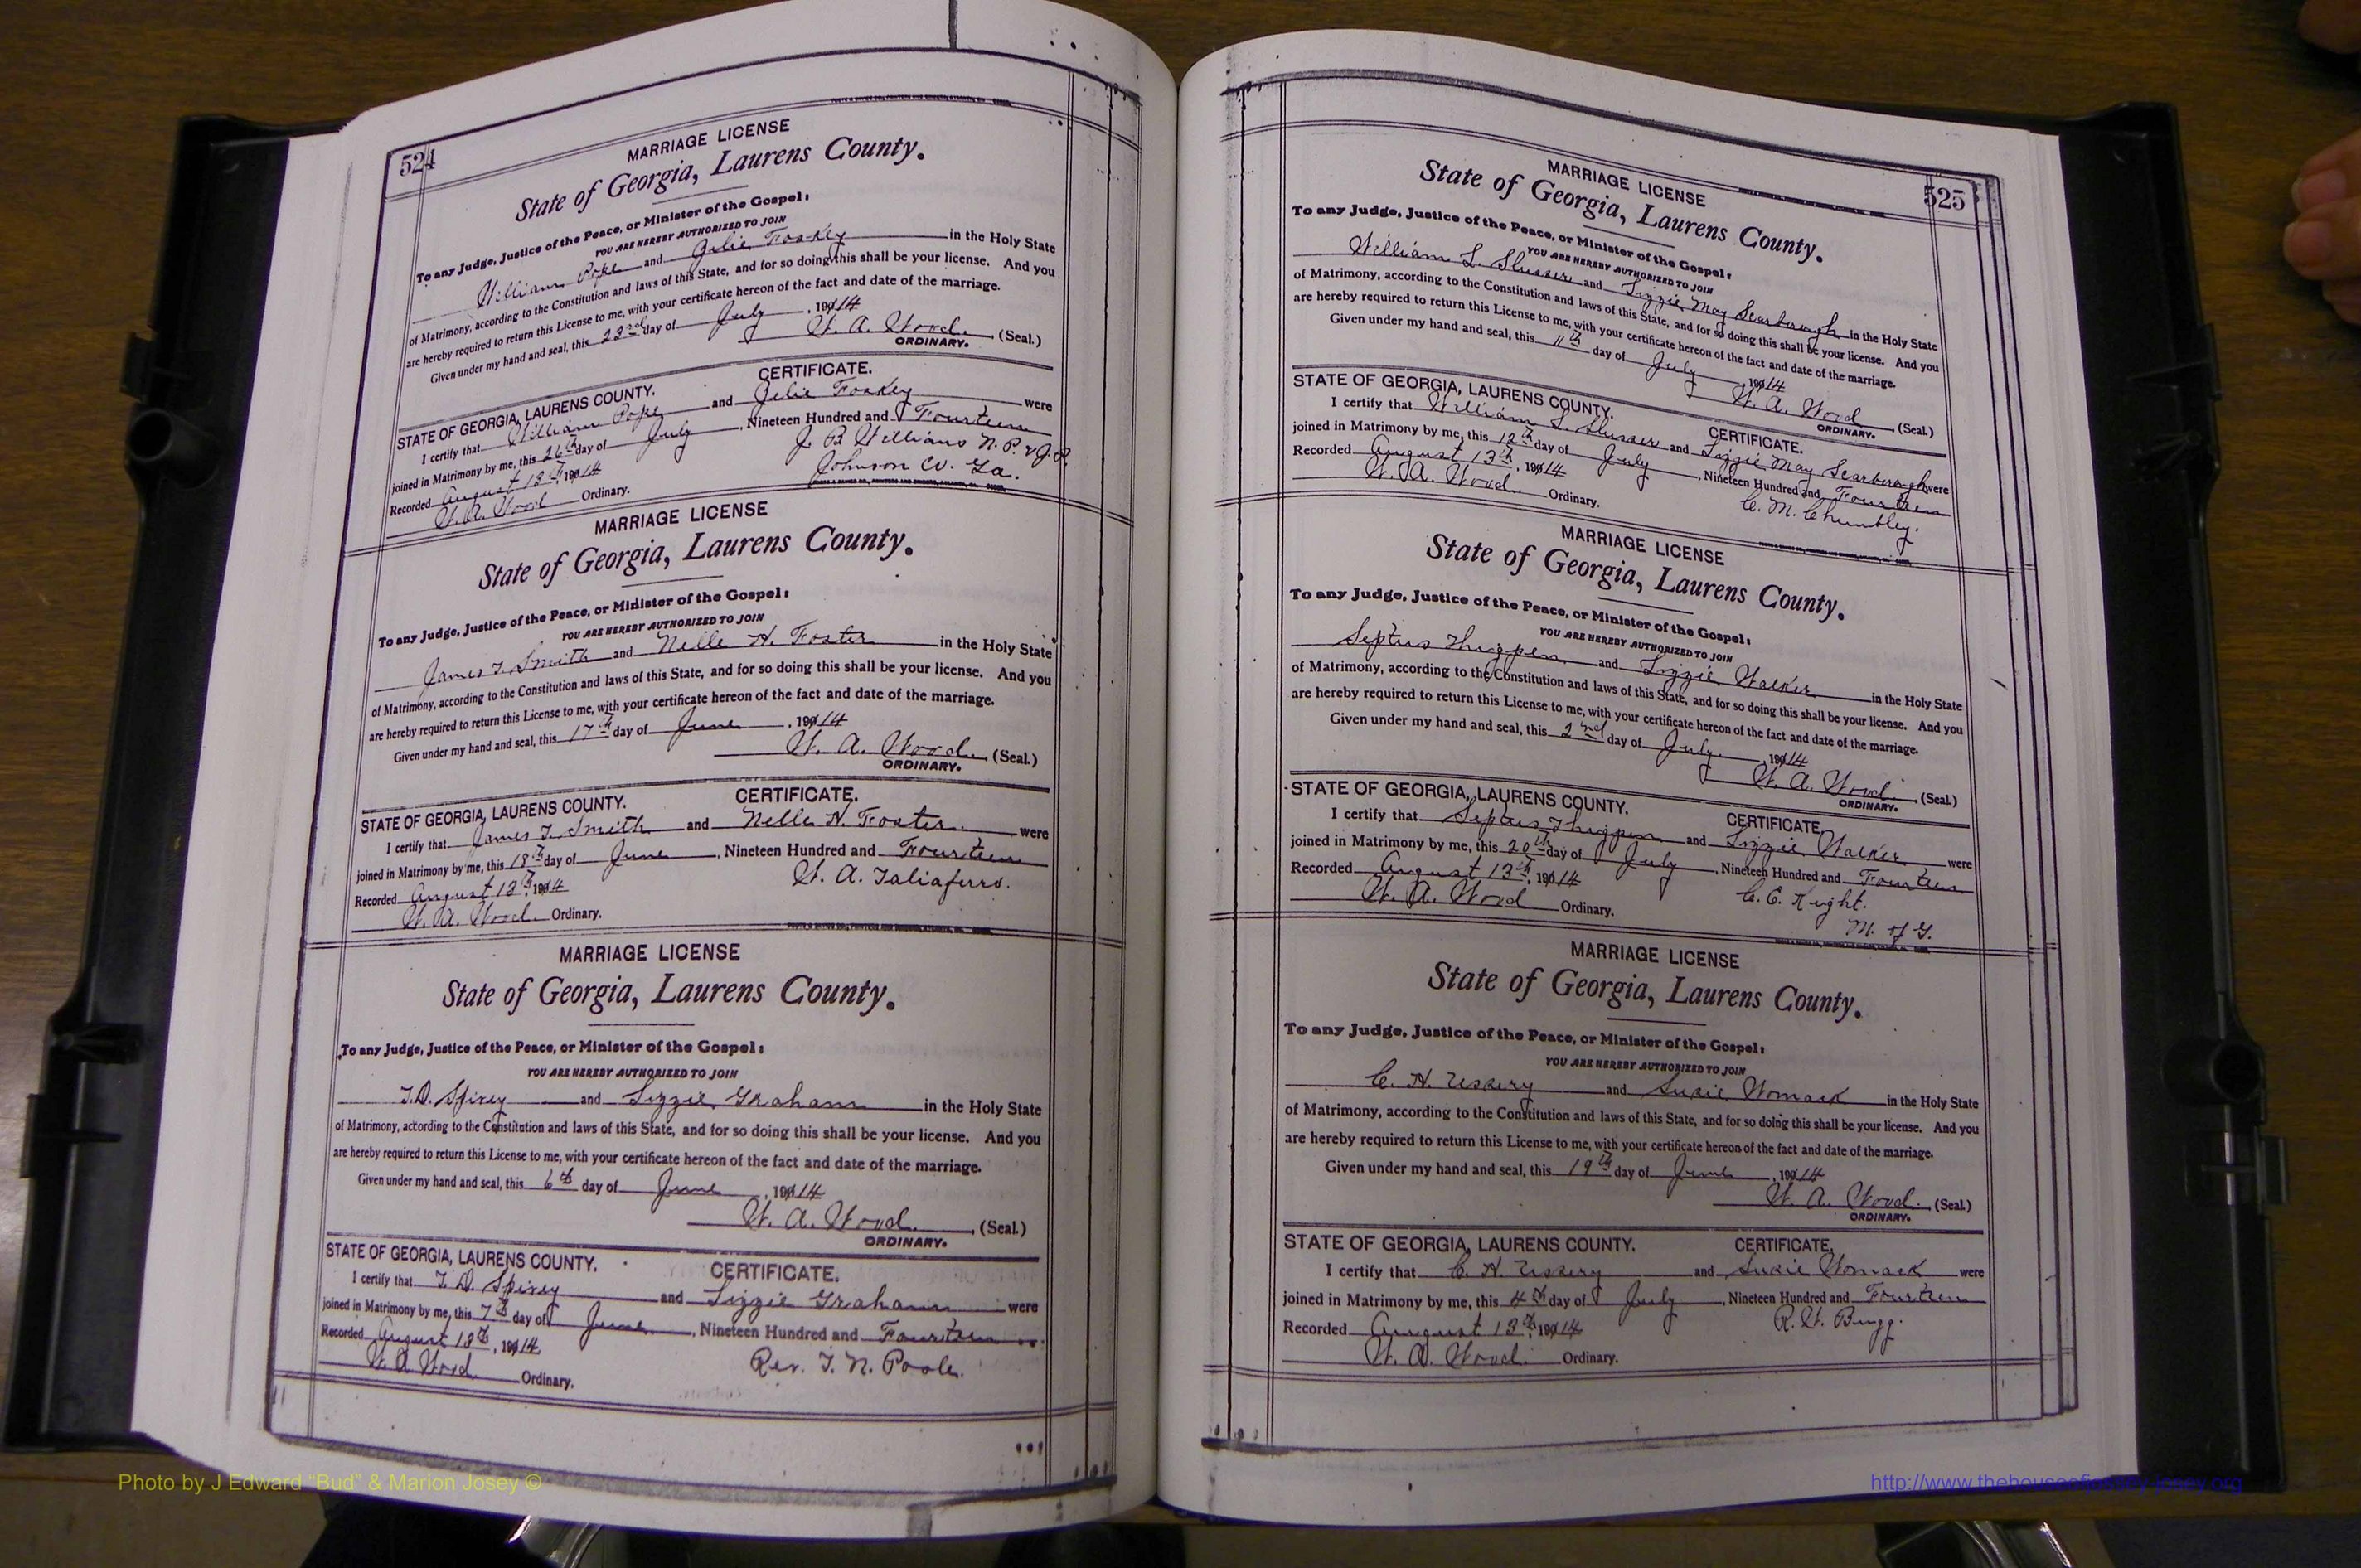 524
MARRIAGE LICENSE
State of Georgia, Laurens County.
To any Judge, Justice of the Peace, or Minister of the Gospel:
YOU ARE HEREBY AUTHORIZED TO JOIN
William Pope and Zelie Foskey in the Holy State
of Matrimony, according to the Constitution and laws of this State, and for so doing this shall be your license. And you
are hereby required to return this License to me, with your certificate hereon of the fact and date of the marriage.
Given under my hand and seal, this 23rd day of July, 1914
W. A. Wood. (Seal.)
ORDINARY.
CERTIFICATE.
STATE OF GEORGIA, LAURENS COUNTY.
I certify that William Pope and Zelie Foskey were
joined in Matrimony by me, this 26th day of July, Nineteen Hundred and Fourteen
Recorded August 13th, 1914 J. B Williams N. P. & J. P.
W. A. Wood Ordinary. Johnson Co. Ga.
MARRIAGE LICENSE
State of Georgia, Laurens County.
To any Judge, Justice of the Peace, or Minister of the Gospel:
YOU ARE HEREBY AUTHORIZED TO JOIN
James T. Smith and Nelle H. Foster in the Holy State
of Matrimony, according to the Constitution and laws of this State, and for so doing this shall be your license. And you
are hereby required to return this License to me, with your certificate hereon of the fact and date of the marriage.
Given under my hand and seal, this 17th day of June, 1914
W. A. Wood. (Seal.)
ORDINARY.
CERTIFICATE.
STATE OF GEORGIA, LAURENS COUNTY.
I certify that James T. Smith and Nelle H. Foster were
joined in Matrimony by me, this 18th day of June, Nineteen Hundred and Fourteen
Recorded August 13th, 1914 W. A. Taliaferro.
W. A. Wood. Ordinary.
MARRIAGE LICENSE
State of Georgia, Laurens County.
To any Judge, Justice of the Peace, or Minister of the Gospel:
YOU ARE HEREBY AUTHORIZED TO JOIN
T. D. Spivey and Lizzie Graham in the Holy State
of Matrimony, according to the Constitution and laws of this State, and for so doing this shall be your license. And you
are hereby required to return this License to me, with your certificate hereon of the fact and date of the marriage.
Given under my hand and seal, this 6th day of June, 1914
W. A. Wood. (Seal.)
ORDINARY.
STATE OF GEORGIA, LAURENS COUNTY. CERTIFICATE.
I certify that T. D. Spivey and Lizzie Graham were
joined in Matrimony by me, this 7th day of June, Nineteen Hundred and Fourteen
Recorded August 13th, 1914 Rev. T. N. Poole.
W. A. Wood Ordinary.
525
MARRIAGE LICENSE
State of Georgia, Laurens County.
To any Judge, Justice of the Peace, or Minister of the Gospel:
YOU ARE HEREBY AUTHORIZED TO JOIN
William L. Slusser and Lizzie May Scarborough in the Holy State
of Matrimony, according to the Constitution and laws of this State, and for so doing this shall be your license. And you
are hereby required to return this License to me, with your certificate hereon of the fact and date of the marriage.
Given under my hand and seal, this 11th day of July, 1914
W. A. Wood (Seal.)
ORDINARY.
STATE OF GEORGIA, LAURENS COUNTY. CERTIFICATE.
I certify that William L. Slusser and Lizzie May Scarborough were
joined in Matrimony by me, this 12th day of July, Nineteen Hundred and Fourteen
Recorded August 13th, 1914 C. M.
W. A. Wood. Ordinary.
MARRIAGE LICENSE
State of Georgia, Laurens County.
To any Judge, Justice of the Peace, or Minister of the Gospel:
YOU ARE HEREBY AUTHORIZED TO JOIN
Septus Thigpen and Lizzie Walker in the Holy State
of Matrimony, according to the Constitution and laws of this State, and for so doing this shall be your license. And you
are hereby required to return this License to me, with your certificate hereon of the fact and date of the marriage.
Given under my hand and seal, this 2nd day of July, 1914
W. A. Wood (Seal.)
ORDINARY.
STATE OF GEORGIA, LAURENS COUNTY. CERTIFICATE.
I certify that Septus Thigpen and Lizzie Walker were
joined in Matrimony by me, this 20th day of July, Nineteen Hundred and Fourteen
Recorded August 13th, 1914 C. C. Kight.
W. A. Wood Ordinary. M. of G.
MARRIAGE LICENSE
State of Georgia, Laurens County.
To any Judge, Justice of the Peace, or Minister of the Gospel:
YOU ARE HEREBY AUTHORIZED TO JOIN
C. H. Ussery and Susie Womack in the Holy State
of Matrimony, according to the Constitution and laws of this State, and for so doing this shall be your license. And you
are hereby required to return this License to me, with your certificate hereon of the fact and date of the marriage.
Given under my hand and seal, this 19th day of June, 1914
W. A. Wood. (Seal.)
ORDINARY.
STATE OF GEORGIA, LAURENS COUNTY. CERTIFICATE.
I certify that C. H. Ussery and Susie Womack were
joined in Matrimony by me, this 4th day of July, Nineteen Hundred and Fourteen
Recorded August 13th, 1914 R. W. Bugg.
W. A. Wood. Ordinary.
Photo by J Edward "Bud" & Marion Josey ©